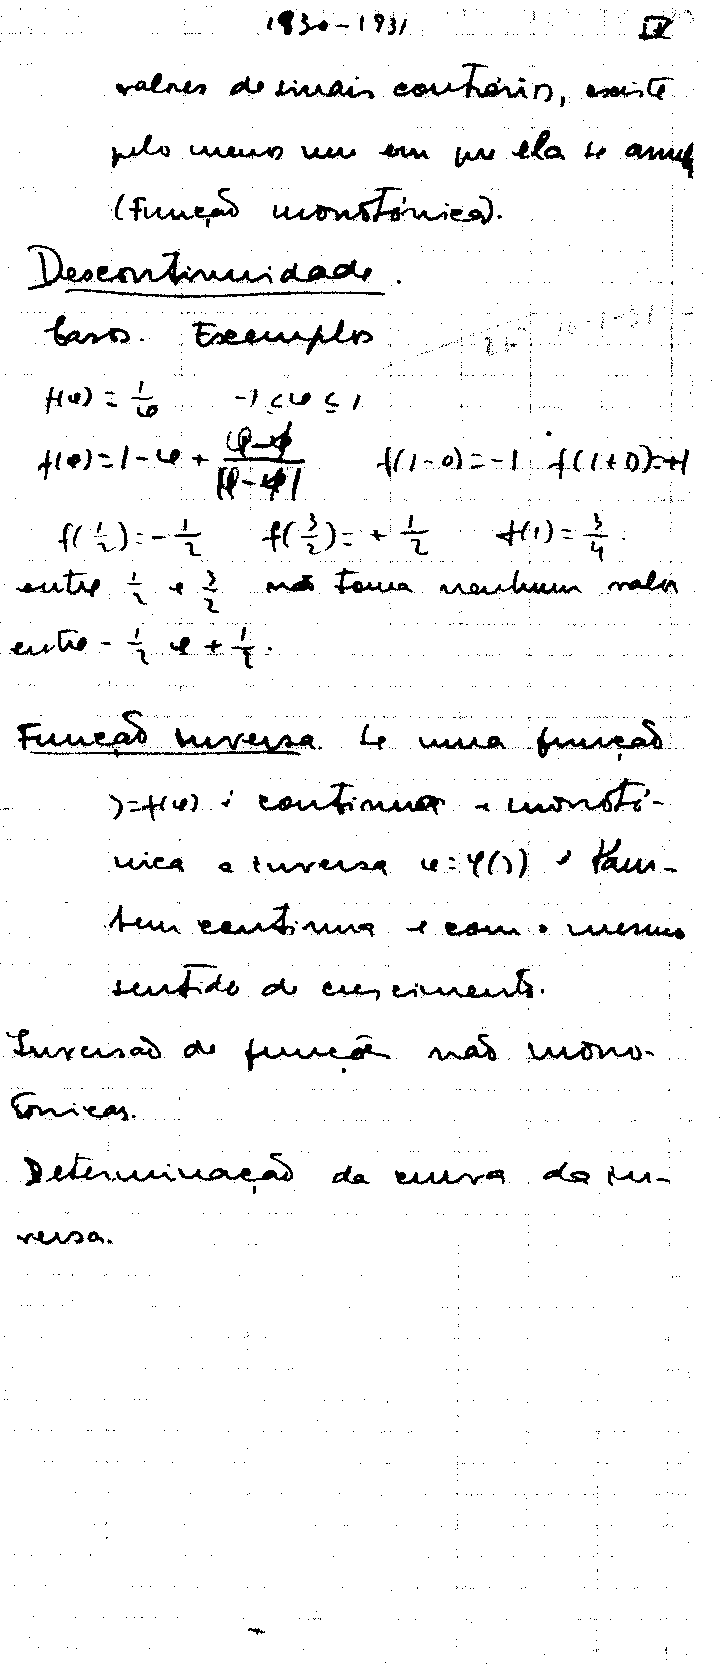 1930-1931 IV
valores de sinais contrários, existe
pelo menos um em que ela se anula
(Função monotónica).
Descontinuidade.
Casos. Exemplos
f(x) = 1/x -1 ≤ x ≤ 1
f(x) = 1-x + f(1-0) = -1 f(1+0) = +1
f(1/2) = -1/2 f(3/2) = +1/2 f(1) = 3/4.
entre 1/2 e 3/2 não toma nenhum valor
entre -1/2 e +1/2.
Função inversa Se uma função
y=f(x) é contínua e monotó-
nica a inversa x=φ(y) é tam-
bem contínua e com o mesmo
sentido de crescimento.
Inversão de função não mono-
tónicas.
Determinação da curva da in-
versa.